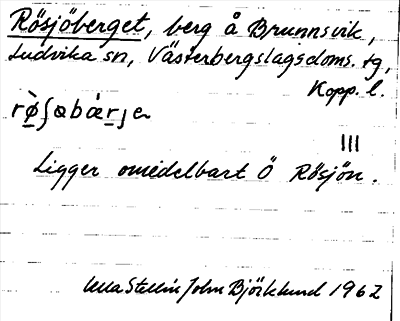 Rösjöberget, berg å Brunnsvik,
Ludvika sn, Västerbergslagsdoms. tg,
Kopp. l.
rø̀ʃɵbærɟe
III
Ligger omedelbart Ö Rösjön.
Stellin John Björklund 1962